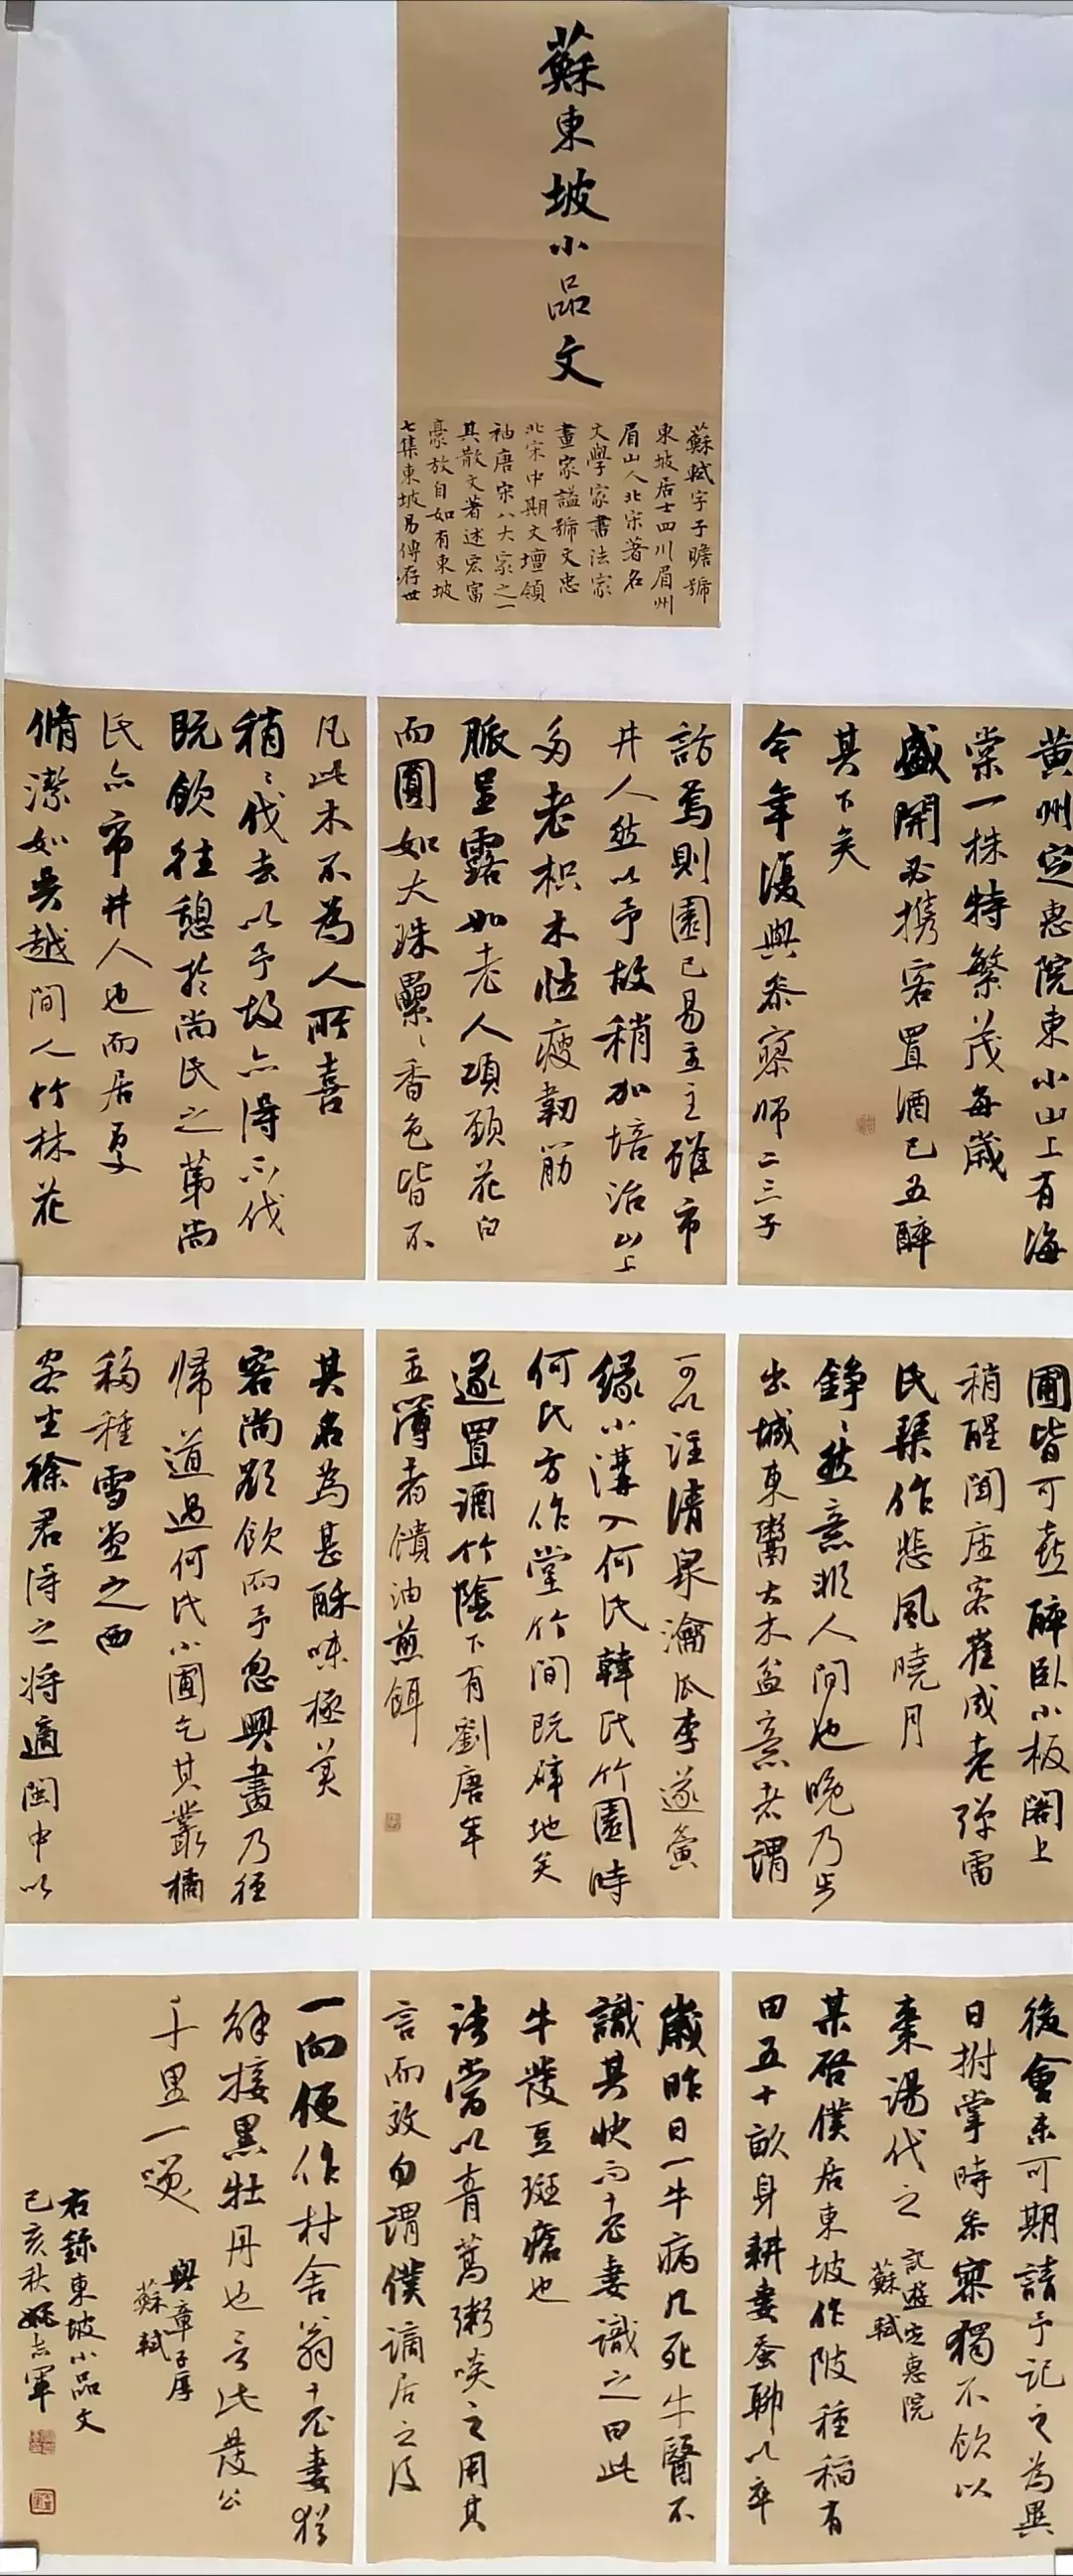 蘇東坡小品文
蘇軾字子瞻號
東坡居士四川眉州
眉山人北宋著名
文學家書法家
畫家謚號文忠
北宋中期文壇領
袖唐宋八大家之一
其散文著述宏富
豪放自如有東坡
七集東坡易傳存世
黃州定惠院東小山上有海
棠一株特繁茂每歲
盛開必携客置酒已五醉
其下矣
今年復與參寥師二三子
訪焉則園已易主主雖市
井人然以予故稍加培治山上
多老枳木性瘦韌筋
脈呈露如老人項頸花白
而圓如大珠纍〻香色皆不
凡此木不為人所喜
稍〻伐去以予故亦得不伐
既飲往憩於尚氏之第尚
氏亦市井人也而居處
脩潔如吳越間人竹林花
圃皆可喜醉臥小板閣上
稍醒聞座客崔成老彈雷
氏琴作悲風曉月
錚〻然意非人間也晚乃步
出城東鬻大木盆意者謂
可以注清泉瀹瓜李遂夤
緣小溝入何氏韓氏竹園時
何氏方作堂竹間既辟地矣
遂置酒竹陰下有劉唐年
主簿者饋油煎餌
其名為甚酥味極美
客尚欲飲而予忽興盡乃徑
歸道過何氏小圃乞其叢橘
移種雪堂之西
客主徐君得之將適閩中以
後會未可期請予記之為異
日拊掌時參寥獨不飲以
棗湯代之
記遊定惠院
蘇軾
某啓僕居東坡作陂種稻有
田五十畝身耕妻蚕聊以卒
歲昨日一牛病几死牛醫不
識其狀而老妻識之曰此
牛發豆斑瘡也
法當以青蒿粥啖之用其
言而效勿謂僕謫居之後
一向便作村舍翁老妻猶
解接黑牡丹也言此發公
千里一笑
與章子厚
蘇軾
右錄東坡小品文
己亥秋姚志軍